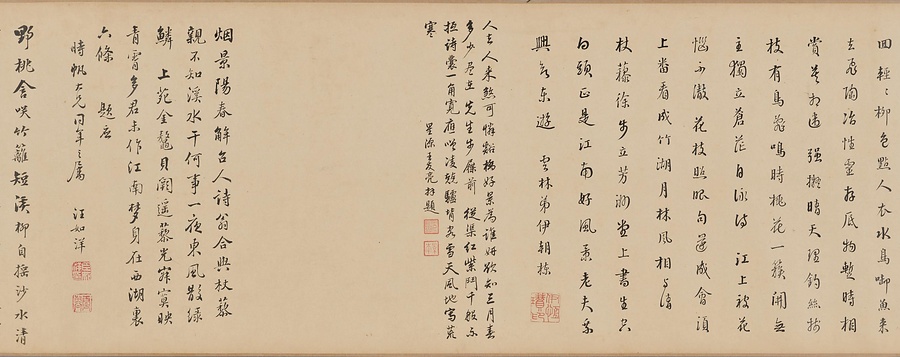 回輕輕柳色點人衣水鳥啣魚來
去飛陶冶性靈存底物暫時相
賞莫相違 強擬晴天理釣絲折
枝有鳥鳴時桃花一簇開無
主獨立蒼茫自詠詩 江上被花
惱不徹花枝照眼句還成會須
上番看成竹湖月林風相與清
杖藜徐步立芳洲堂上書生空
白頭正是江南好風景老夫乘
興欲東遊 雲林弟伊朝棟
人去人來煞可憐谿橋好景為誰妍欲知三月春
多少盡在先生步屧前 從渠紅紫鬥千般
詩囊一角寬應笑凌兢驢背客雪天風地寫荒
寒 星源王友亮拜題
烟景陽春解召人詩翁合與杖藜
親不知溪水干何事一夜東風散綠
鱗 上苑金鼇貝闕遙藜光寂寞映
青霄多君未作江南夢身在西湖裏
六條 題應
時帆大兄同年之屬 汪如洋
野桃含笑竹籬短溪柳自搖沙水清